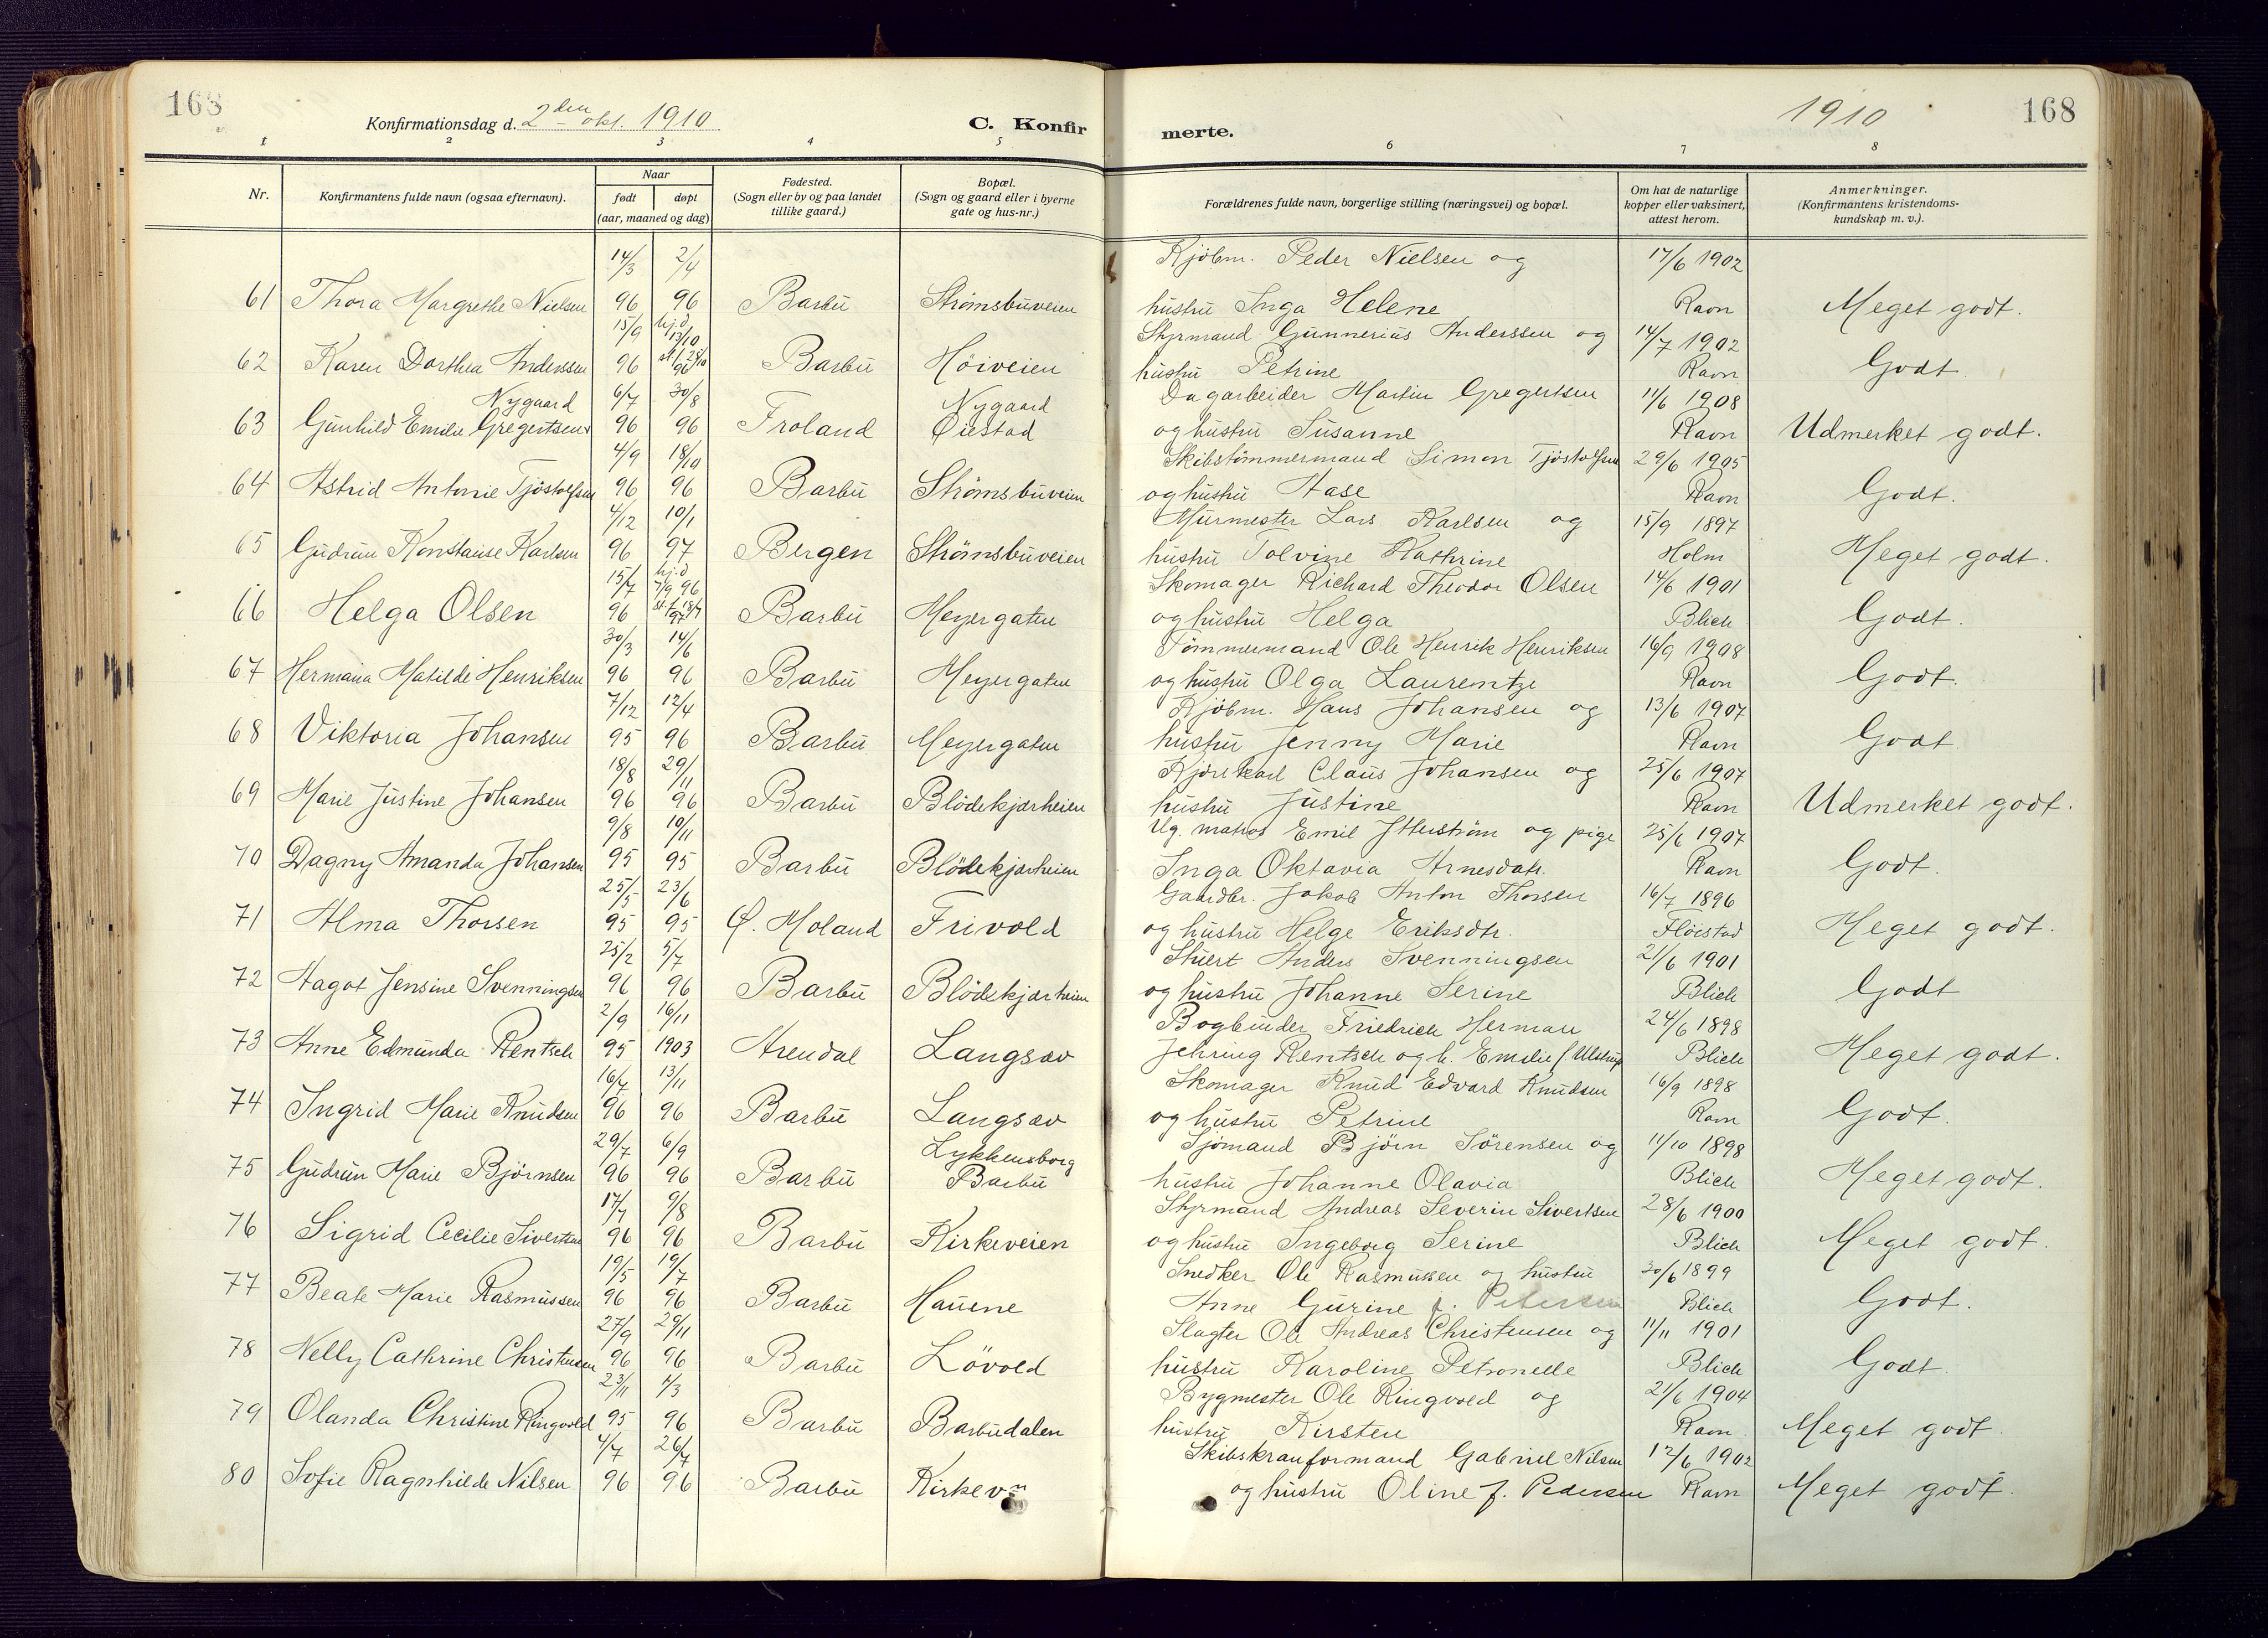 168
Konfirmationsdag d. 2den okt. 1910
C. Konfir
merte.
1910
168
1 2 3 4 5 6 7 8
Nr.
Konfirmantens fulde navn (ogsaa efternavn).
Naar
født døpt
(aar, maaned og dag)
Fødested.
(Sogn eller by og paa landet
tillike gaard.)
Bopæl.
(Sogn og gaard eller i byerne
gate og hus-nr.)
Forældrenes fulde navn, borgerlige stilling (næringsvei) og bopæl.
Om hat de naturlige
kopper eller vaksinert,
attest herom.
Anmerkninger.
(Konfirmantens kristendoms-
kundskap m. v.).
14/3 2/4 Kjøbm. Peder Nielsen og 17/6 1902
61 Thora Margrethe Nielsen 96 96 Barbu Strømsbuveien hustru Inga Helene Ravn Meget godt.
15/9 hj.d 13/10 Styrmand Gunnerius Anderssen og 14/7 1902
62 Karen Dorthea Anderssen 96 st.f. 25/10 96 Barbu Høiveien hustru Petrine Ravn Godt.
Nygaard 6/7 30/8 Nygaard Dagarbeider Martin Gregertsen 11/6 1908
63 Gunhild Emilie Gregertsen 96 96 Froland Øiestad og hustru Susanne Ravn Udmerket godt.
4/9 18/10 Skibstømmermand Simon Tjøstolfsen 29/6 1905
64 Astrid Antonie Tjøstolfsen 96 96 Barbu Strømsbuveien og hustru Aase Ravn Godt.
4/12 10/1 Murmester Lars Karlsen og 15/9 1897
65 Gudrun Konstanse Karlsen 96 97 Bergen Strømsbuveien hustru Tolvine Kathrine Holm Meget godt.
15/7 hj.d 7/9 96 Skomager Richard Theodor Olsen 14/6 1901
66 Helga Olsen 96 st.f. 18/4 97 Barbu Meyergaten og hustru Helga Blich Godt.
30/3 14/6 Tømmermand Ole Henrik Henriksen 16/9 1908
67 Hermana Matilde Henriksen 96 96 Barbu Meyergaten og hustru Olga Laurentze Ravn Godt.
7/12 12/4 Kjøbm. Hans Johansen og 13/6 1907
68 Viktoria Johansen 95 96 Barbu Meyergaten hustru Jenny Marie Ravn Godt.
18/8 29/11 Kjørekarl Claus Johansen og 25/6 1907
69 Marie Justine Johansen 96 96 Barbu Blödekjærheien hustru Justine Ravn Udmerket godt.
9/8 10/11 Ug. matros Emil Itterstrøm og pige 25/6 1907
70 Dagny Amanda Johansen 95 95 Barbu Blödekjærheien Inga Oktavia Arnesdatr. Ravn Godt.
25/5 23/6 Gaardbr. Jakob Anton Thorsen 16/7 1896
71 Alma Thorsen 95 95 Ø. Moland Frivold og hustru Helge Eriksdtr. Fløistad Meget godt.
25/2 5/7 Anders Svenningsen 21/6 1901
72 Aagot Jensine Svenningsen 96 96 Barbu Blödekjærheien og hustru Johanne Serine Blich Godt
2/9 16/11 Bogbinder Friedrich Herman 24/6 1898
73 Anne Edmunda Rentsch 95 1903 Arendal Langsæv Jehring Rentsch og h. Emilie f Ulstrup Blich Meget godt.
16/7 13/11 Skomager Knud Edvard Knudsen 16/9 1898
74 Ingrid Marie Knudsen 96 96 Barbu Langsæv og hustru Petrine Ravn Godt.
29/7 6/9 Lykkensborg Sjömand Bjørn Sørensen og 11/10 1898
75 Gudrun Marie Bjørnsen 96 96 Barbu Barbu hustru Johanne Olavia Blich Meget godt.
17/7 9/8 Styrmand Andreas Severin Sivertsen 28/6 1900
76 Sigrid Cecilie Sivertsen 96 96 Barbu Kirkeveien og hustru Ingeborg Serine Blich Meget godt.
19/5 19/7 Snedker Ole Rasmussen og hustru 30/6 1899
77 Beate Marie Rasmussen 96 96 Barbu Hauene Anne Gurine f. Petersen Blich Godt.
27/9 29/11 Slagter Ole Andreas Christensen og 11/11 1901
78 Nelly Cathrine Christensen 96 96 Barbu Løvold hustru Karoline Petronelle Blich Godt.
23/11 1/3 Bygmester Ole Ringvold og 21/6 1904
79 Olanda Christine Ringvold 95 96 Barbu Barbudalen hustru Kirsten Ravn Meget godt.
4/7 26/7 Skibskranformand Gabriel Nilsen 12/6 1902
80 Sofie Ragnhilde Nilsen 96 96 Barbu Kirkevn og hustru Oline f. Pedersen Ravn Meget godt.